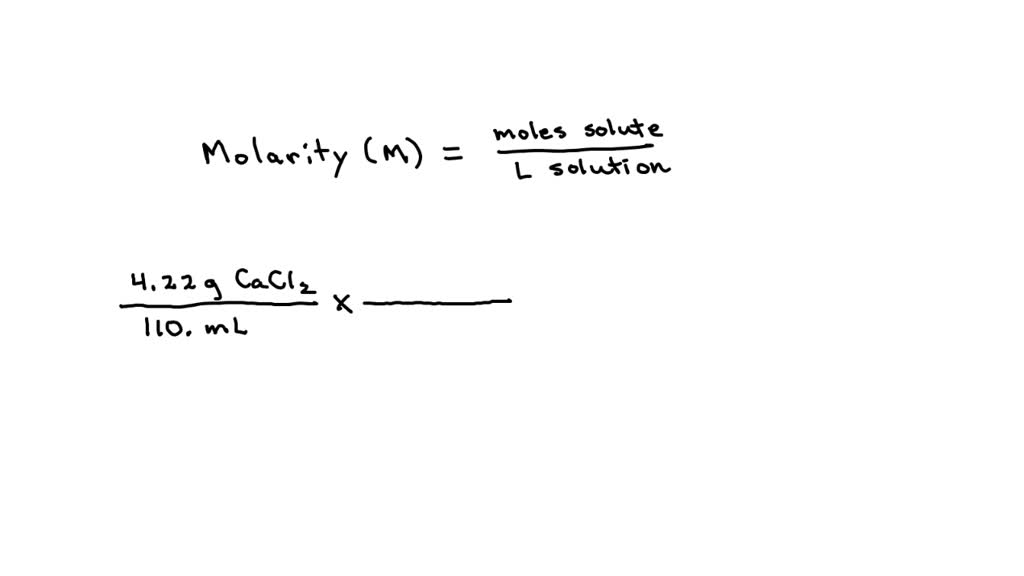 Molarity (M) = moles solute / L solution
4.22 g CaCl₂ / 110. mL x